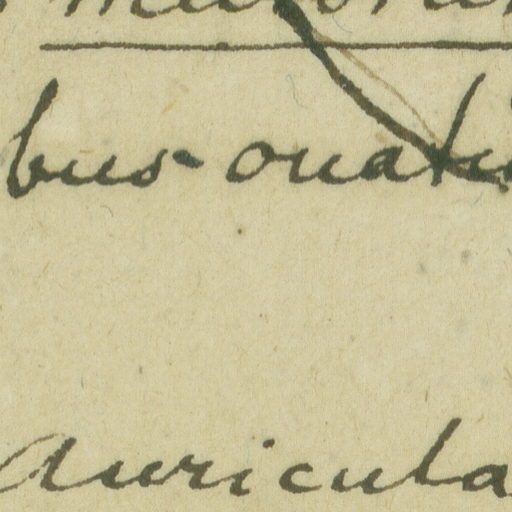 bus ouati
auricula